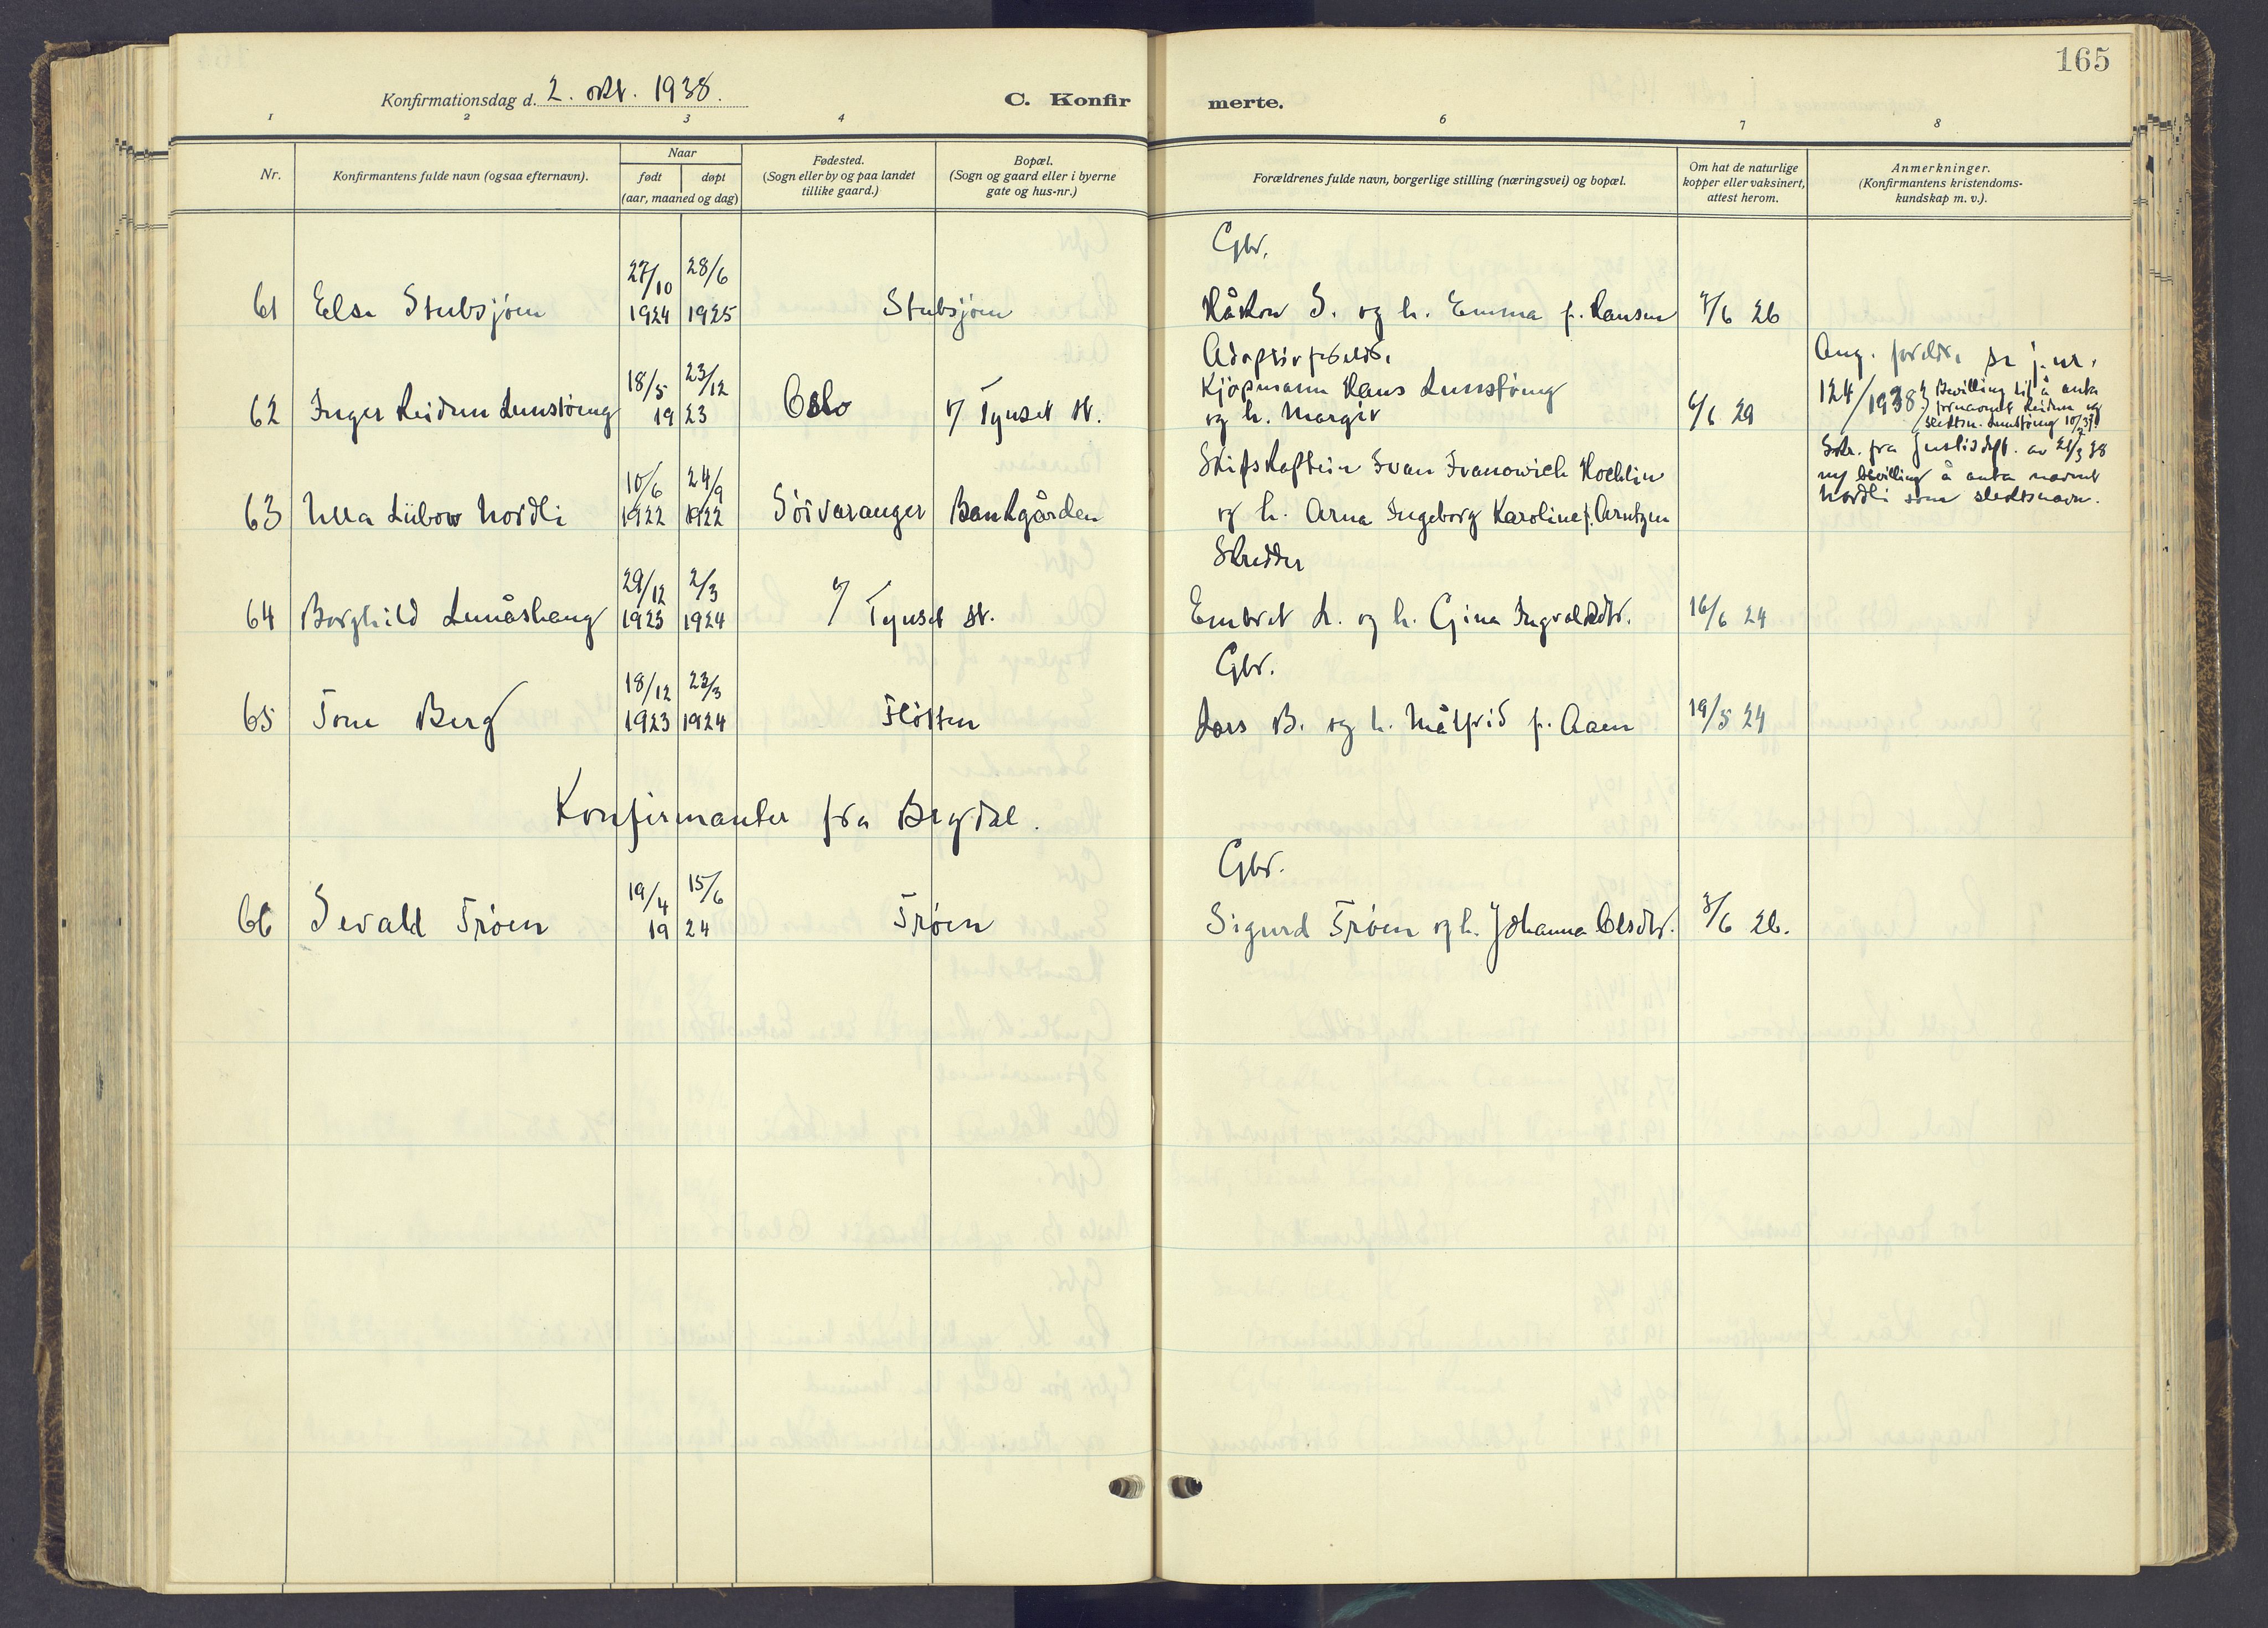 165
Konfirmationsdag d. 2. okt. 1938.
C. Konfirmerte.
1 2 3 4 6 7 8
Nr.
Konfirmantens fulde navn (ogsaa efternavn).
Naar
født døpt
(aar, maaned og dag)
Fødested.
(Sogn eller by og paa landet
tillike gaard.)
Bopæl.
(Sogn og gaard eller i byerne
gate og hus-nr.)
Forældrenes fulde navn, borgerlige stilling (næringsvei) og bopæl.
Om hat de naturlige
kopper eller vaksinert,
attest herom.
Anmerkninger.
(Konfirmantens kristendoms-
kundskap m. v.).
Gbr.
27/10 28/6
61 Elsa Stubsjøen 1924 1925 Stubsjøen Håkon S. og h. Emma f. Hansen 7/6 26
Adoptivforeldr.
Ang. foreldr. se j.nr.
18/5 23/12 Kjøpmann Hans Lunstøeng
124/1938; Bevilling til å anta
fornavnet Reidun og
62 Inger Reidun Lunstøeng 19 23 Oslo v/ Tynset st. og h. Margit 6/6 29
slektsn. Lunstøeng
Skr. fra Justisdept. av 21/3 38
10/6 24/9 Skipskaptein Ivan Ivanowich Kochlin
bevilling å anta navnet
63 Ulla Lübow Nordli 1922 1922 Sörvaranger Bankgården og h. Arna Ingeborg Karoline f. Arntzen
Nordli som slektsnavn.
Skredder
29/12 2/3
64 Borghild Lunåshaug 1923 1924 v/ Tynset st. Embret L. og h. Gina Ingvaldsdtr. 16/6 24
Gbr.
18/12 23/3
65 Tone Berg 1923 1924 Fløtten Lars B. og h. Målfrid f. Aaen 19/5 24
Konfirmanter fra Brydal.
Gbr.
19/4 15/6
66 Sevald Trøen 19 24 Trøen Sigurd Trøen og h. Johanna Olsdtr. 3/6 26.